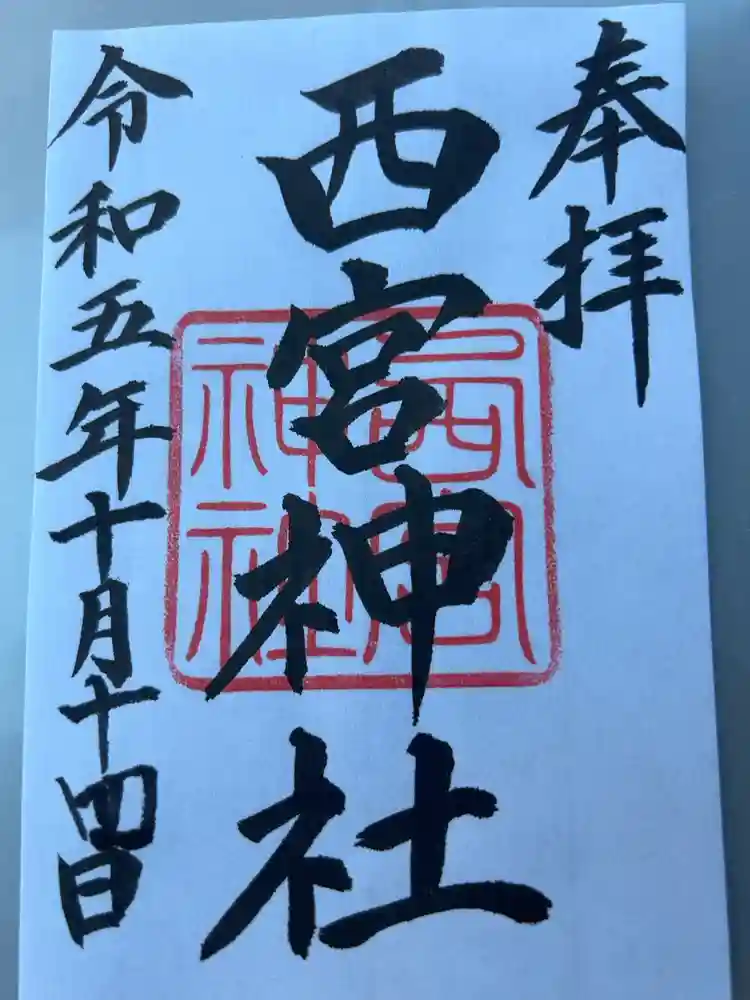 奉拝
西宮神社
西宮
神社
令和五年十月十四日